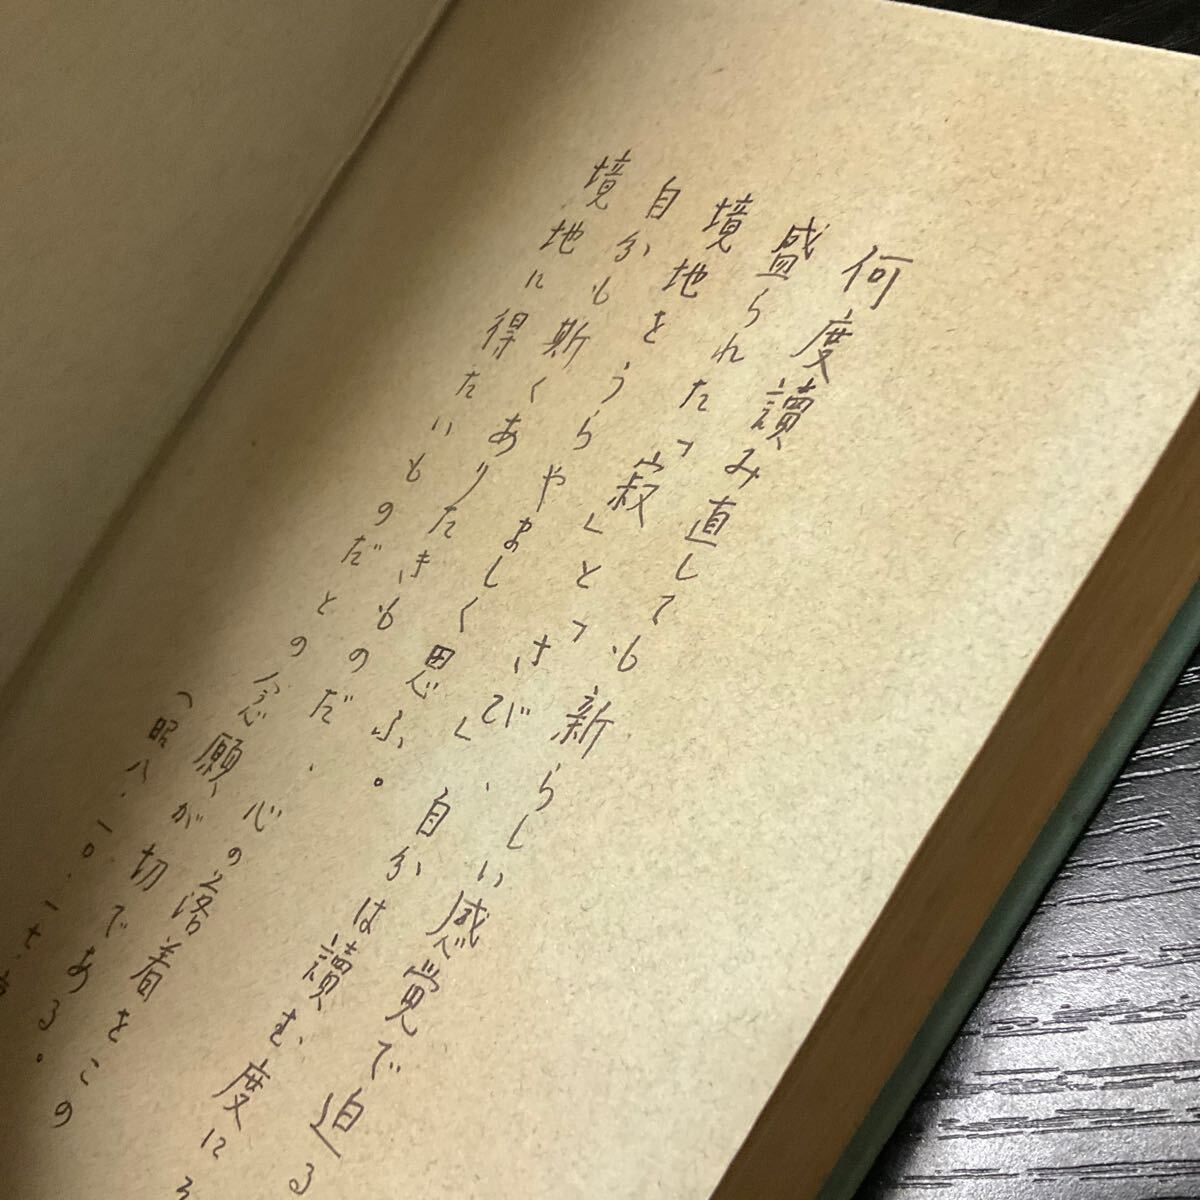 何度讀み直しても新らしい感覚で迫る
盛られた「寂」と「さび」、自分は讀む度にそ
境地をうらやましく思ふ。
自分も斯くありたきものだ、心の落着をこの
境地に得たいものだとの念願が切である。
（昭八・一〇・一七・